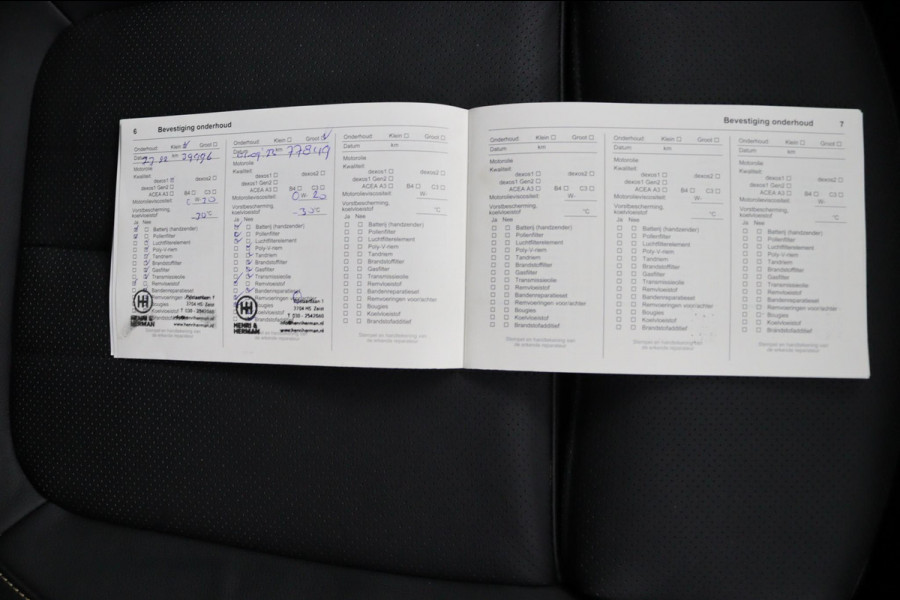 6 Bevestiging onderhoud
Onderhoud: Klein Groot
Datum km 29996
Motorolie
Kwaliteit:
dexos1 dexos2
dexos1 Gen2
ACEA A3 B4 C3
Motorolieviscositeit W-
Vorstbescherming,
koelvloeistof -30°C
Ja Nee
Batterij (handzender)
Pollenfilter
Luchtfilterelement
Poly-V-riem
Tandriem
Brandstoffilter
Gasfilter
Transmissieolie
Remvloeistof
Bandenreparatieset
Remvoeringen
Bougies
Koelvloeistof
Brandstofadditief
HENRI & HERMAN
3704 HS Zeist
www.henriherman.nl
Onderhoud: Klein Groot
Datum km 77849
Motorolie
Kwaliteit:
dexos1 dexos2
dexos1 Gen2
ACEA A3 B4 C3
Motorolieviscositeit 0 W- 20
Vorstbescherming,
koelvloeistof -30°C
Ja Nee
Batterij (handzender)
Pollenfilter
Luchtfilterelement
Poly-V-riem
Tandriem
Brandstoffilter
Gasfilter
Transmissieolie
Remvloeistof
Bandenreparatieset
Remvoeringen
HENRI & HERMAN
3704 HS Zeist
www.henriherman.nl
Stempel en handtekening van
de erkende reparateur
Onderhoud: Klein Groot
Datum km
Motorolie
Kwaliteit:
dexos1 dexos2
dexos1 Gen2
ACEA A3 B4 C3
Motorolieviscositeit W-
Vorstbescherming,
koelvloeistof °C
Ja Nee
Batterij (handzender)
Pollenfilter
Luchtfilterelement
Poly-V-riem
Tandriem
Brandstoffilter
Gasfilter
Transmissieolie
Remvloeistof
Bandenreparatieset
Remvoeringen voor/achter
Bougies
Koelvloeistof
Brandstofadditief
Stempel en handtekening van
de erkende reparateur
Bevestiging onderhoud 7
Onderhoud: Klein Groot
Datum km
Motorolie
Kwaliteit:
dexos1 dexos2
dexos1 Gen2
ACEA A3 B4 C3
Motorolieviscositeit W-
Vorstbescherming,
koelvloeistof °C
Ja Nee
Batterij (handzender)
Pollenfilter
Luchtfilterelement
Poly-V-riem
Tandriem
Brandstoffilter
Gasfilter
Transmissieolie
Remvloeistof
Bandenreparatieset
Remvoeringen voor/achter
Bougies
Koelvloeistof
Brandstofadditief
Stempel en handtekening van
de erkende reparateur
Onderhoud: Klein Groot
Datum km
Motorolie
Kwaliteit:
dexos1 dexos2
dexos1 Gen2
ACEA A3 B4 C3
Motorolieviscositeit W-
Vorstbescherming,
koelvloeistof °C
Ja Nee
Batterij (handzender)
Pollenfilter
Luchtfilterelement
Poly-V-riem
Tandriem
Brandstoffilter
Gasfilter
Transmissieolie
Remvloeistof
Bandenreparatieset
Remvoeringen voor/achter
Bougies
Koelvloeistof
Brandstofadditief
Stempel en handtekening van
de erkende reparateur
Onderhoud: Klein Groot
Datum km
Motorolie
Kwaliteit:
dexos1 dexos2
dexos1 Gen2
ACEA A3 B4 C3
Motorolieviscositeit W-
Vorstbescherming,
koelvloeistof °C
Ja Nee
Batterij (handzender)
Pollenfilter
Luchtfilterelement
Poly-V-riem
Tandriem
Brandstoffilter
Gasfilter
Transmissieolie
Remvloeistof
Bandenreparatieset
Remvoeringen voor/achter
Bougies
Koelvloeistof
Brandstofadditief
Stempel en handtekening van
de erkende reparateur